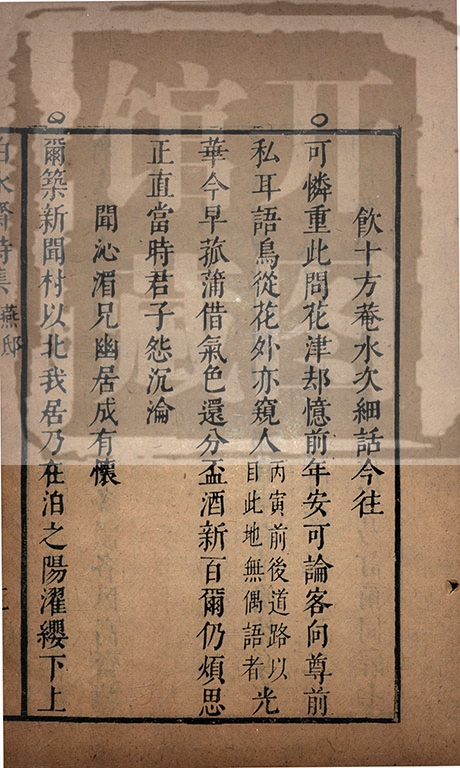 飲十方菴水次細話今往
可憐重此問花津却憶前年安可論客向尊前
私耳語鳥從花外亦窺人丙寅前後道路以目此地無偶語者光
華今早菰蒲借氣色還分盃酒新百爾仍煩思
正直當時君子怨沉淪
聞沁湄兄幽居成有懷
爾築新聞村以北我居乃在泊之陽濯纓下上
白水齋詩集 燕邸
开
图
馆
藏